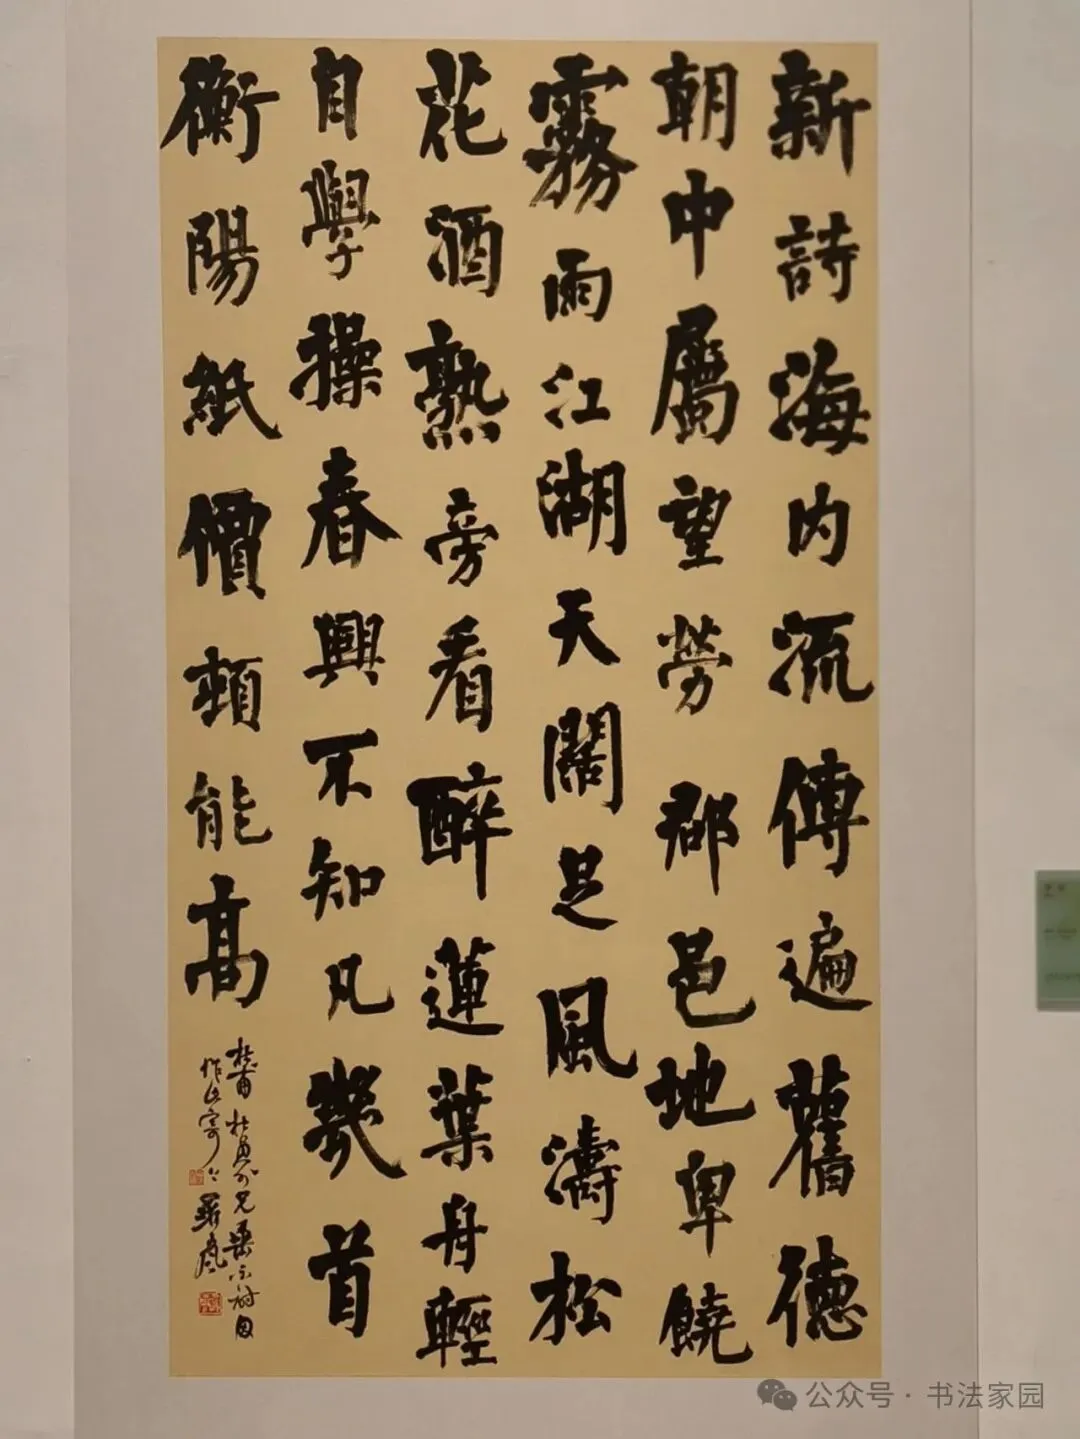 新詩海内流傳遍舊德
朝中屬望勞郡邑地卑饒
霧雨江湖天闊足風濤松
花酒熟旁看醉蓮葉舟輕
自學操春興不知凡幾首
衡陽紙價頓能高
杜甫
作此寄
公众号 · 书法家园